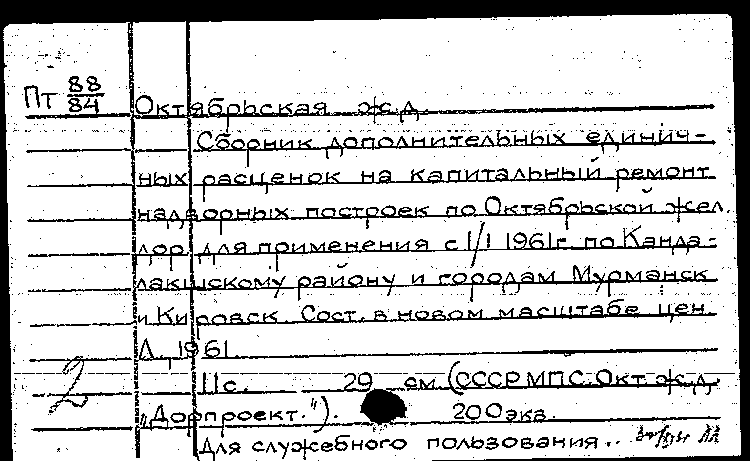 Пт 88/84 Октябрьская ж.д.
Сборник дополнительных единич-
ных расценок на капитальный ремонт
надворных построек по Октябрьской жел.
дор. для применения с 1/I 1961г. по Канда-
лакшскому району и городам Мурманск
и Кировск. Сост. в новом масштабе цен.
Л., 1961
11с. 29 см. (СССР МПС. Окт. ж.д.
2
"Дорпроект."). 200экз.
Для служебного пользования..